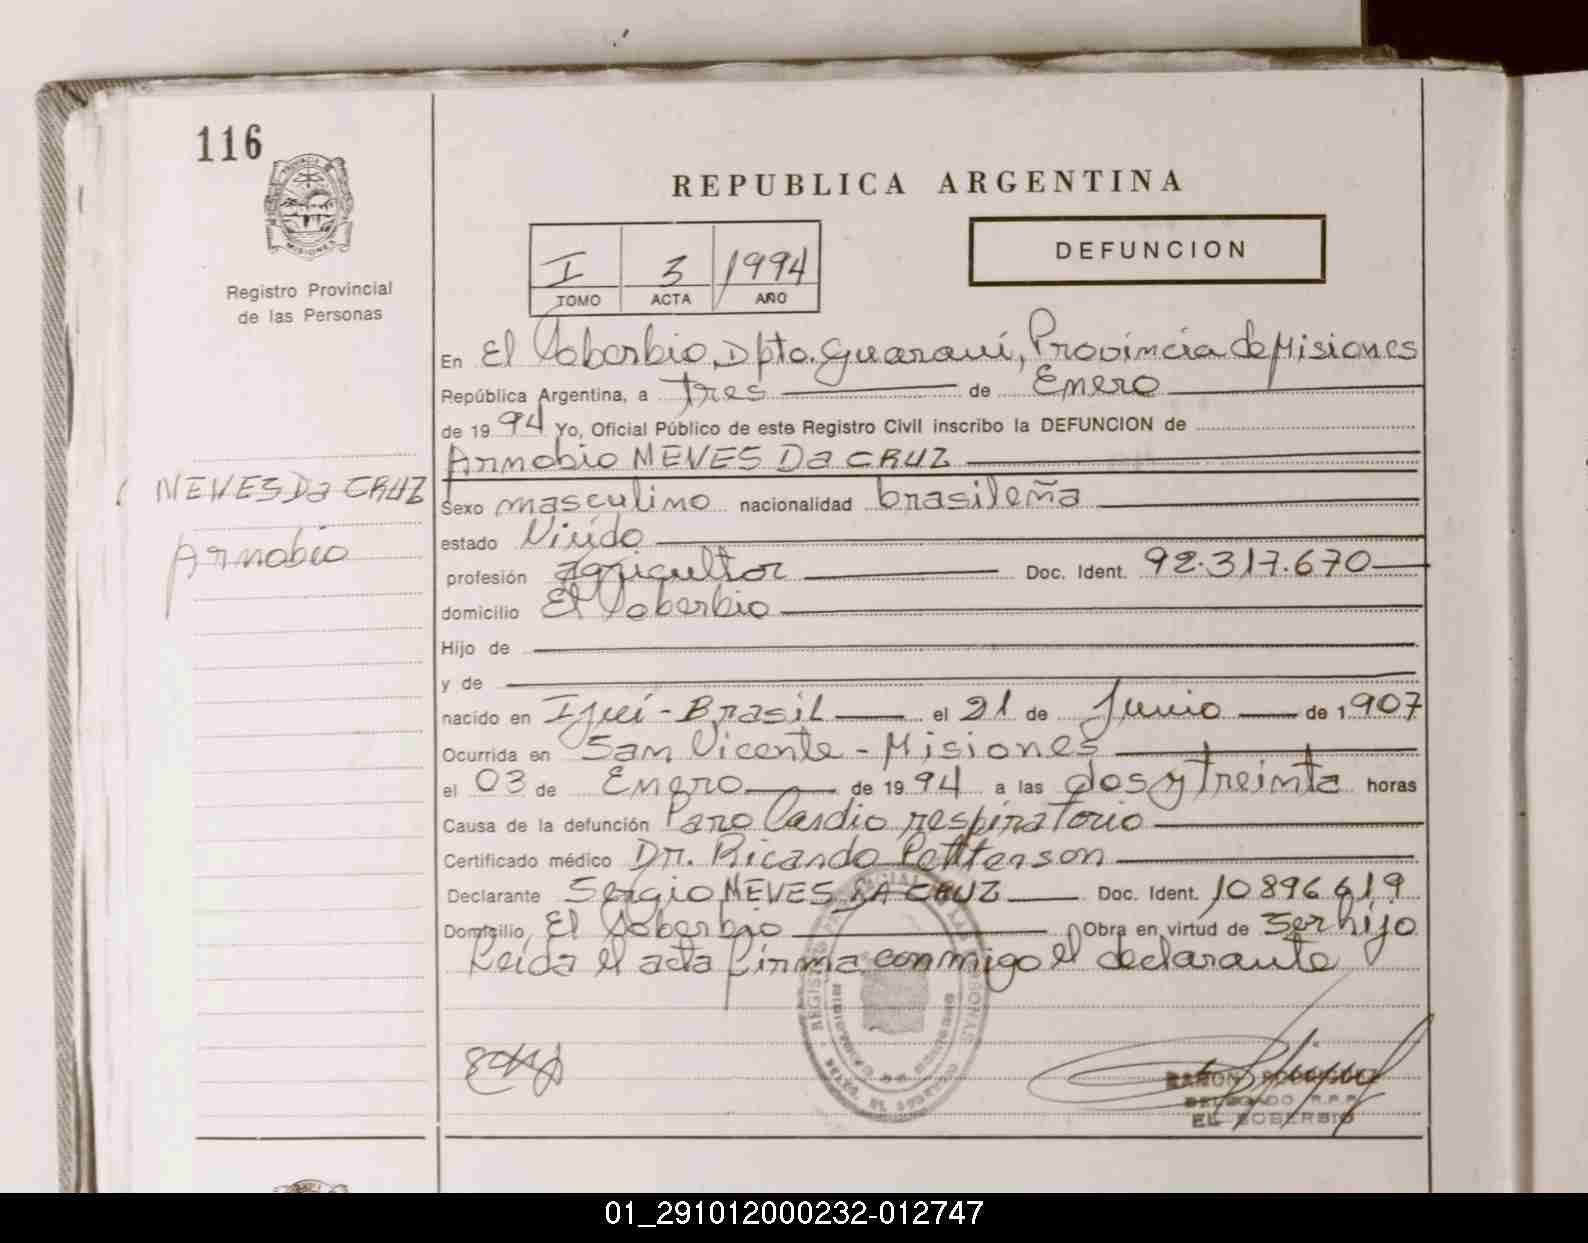 116
PROVINCIA DE
MISIONES
Registro Provincial
de las Personas
REPUBLICA ARGENTINA
I 3 1994
TOMO ACTA AÑO
DEFUNCION
En El Soberbio, Dpto. Guaraní, Provincia de Misiones
República Argentina, a tres de Enero
de 1994 Yo, Oficial Público de este Registro Civil inscribo la DEFUNCION de
Arnobio NEVES Da CRUZ
NEVES Da CRUZ
Arnobio
Sexo masculino nacionalidad brasileña
estado Viudo
profesión agricultor Doc. Ident. 92.317.670
domicilio El Soberbio
Hijo de
y de
nacido en Ijuí - Brasil el 21 de Junio de 1907
Ocurrida en San Vicente - Misiones
el 03 de Enero de 1994 a las dos y treinta horas
Causa de la defunción Paro Cardio respiratorio
Certificado médico Dr. Ricardo
Declarante Sergio NEVES DA CRUZ Doc. Ident. 10896619
Domicilio El Soberbio Obra en virtud de ser hijo
Leida el acta firma conmigo el declarante
RAMON
DELEGADO R.P.P.
EL SOBERBIO
01_291012000232-012747